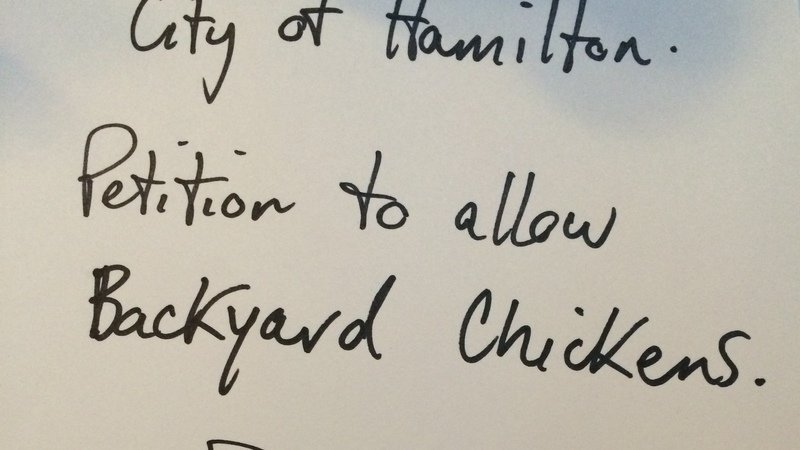 City of Hamilton.
Petition to allow
Backyard Chickens.